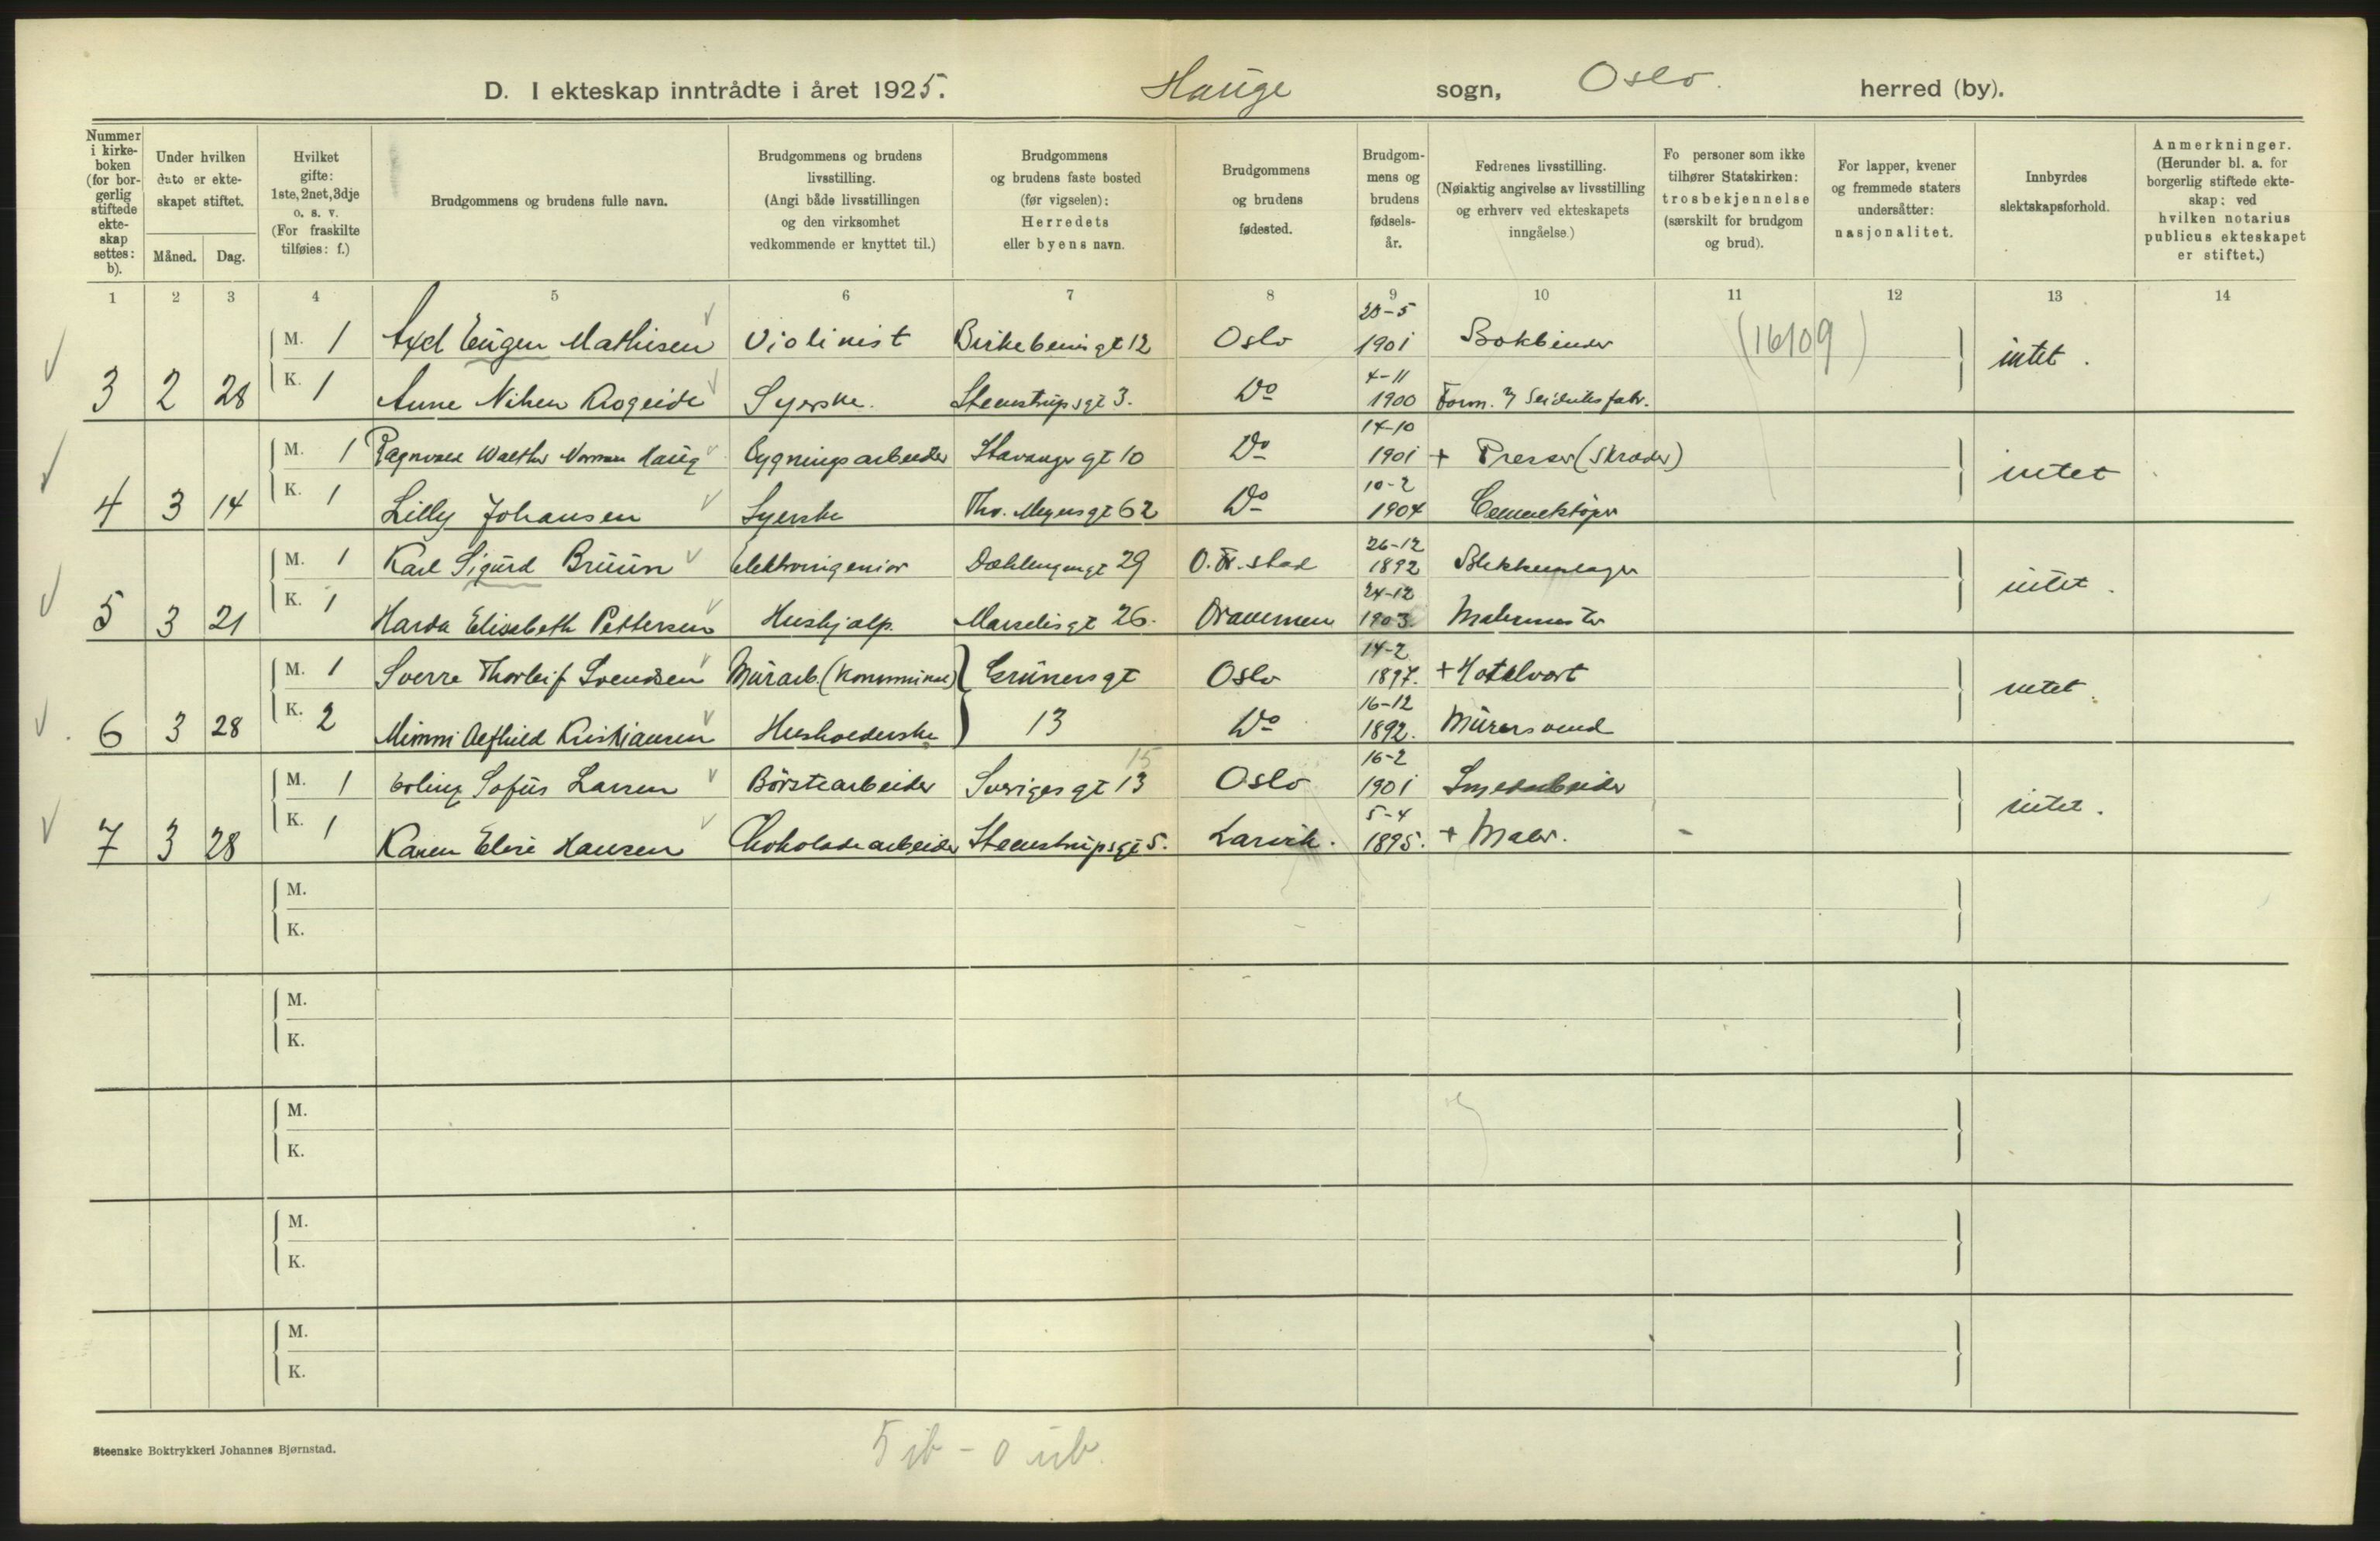 D. I ekteskap inntrådte i året 1925. Hauge sogn, Oslo. herred (by).
Nummer i kirke- boken (for bor- gerlig stiftede ekte- skap settes: b).
Under hvilken dato er ekte- skapet stiftet.
Måned. Dag.
Hvilket gifte: 1ste, 2net, 3dje o. s. v. (For fraskilte tilføies: f.)
Brudgommens og brudens fulle navn.
Brudgommens og brudens livsstilling. (Angi både livsstillingen og den virksomhet vedkommende er knyttet til.)
Brudgommens og brudens faste bosted (før vigselen): Herredets eller byens navn.
Brudgommens og brudens fødested.
Brudgom- mens og brudens fødsels- år.
Fedrenes livsstilling. (Nøiaktig angivelse av livsstilling og erhverv ved ekteskapets inngåelse.)
Fo personer som ikke tilhører Statskirken: trosbekjennelse (særskilt for brudgom og brud).
For lapper, kvener og fremmede staters undersåtter: nasjonalitet.
Innbyrdes slektskapsforhold.
Anmerkninger. (Herunder bl. a. for borgerlig stiftede ekte- skap: ved hvilken notarius publicus ekteskapet er stiftet.)
1 2 3 4 5 6 7 8 9 10 11 12 13 14
M. 1 Axel Eugen Mathisen Violinist Birkebeinigt 12 Oslo 20-5 1901 Bokbinder (16109) intet.
3 2 28 K. 1 Anne Syerske. Steenstrupsgt 3. Do 4-11 1900 Form.
M. 1 Ragnvald Walther Norman Haug Bygningsarbeider Stavangergt 10 Do 14-10 1901 + Presser (Skræder) intet
4 3 14 K. 1 Lilly Johansen Syerske Thv. Meyersgt 62 Do 10-2 1904
M. 1 Karl Sigurd Bruun elektroingeniør Dælenengengt 29 O. Fr. stad 26-12 1892 Blikkenslager intet.
5 3 21 K. 1 Harda Elisabeth Pettersen Hushjælp. Marselisgt 26. Drammen 24-12 1903. Malermester
M. 1 Sverre Thorleif Svendsen Murarb. (Kommunal) Grünersgt Oslo 14-2 1897. + Hotelvært intet.
6 3 28 K. 2 Mimmi Alfhild Kristiansen Husholderske 13 Do 16-12 1892. Murersvend
M. 1 Erling Sofus Larsen Børstearbeider Sverigesgt 13 15 Oslo 16-2 1901 Smedarbeider intet.
7 3 28 K. 1 Karen Elise Hansen Chokoladearbeider Steenstrupsgt 5. Larvik. 5-4 1895. + Maler.
M.
K.
M.
K.
M.
K.
M.
K.
M.
K.
Steenske Boktrykkeri Johannes Bjørnstad.
5 ib - 0 ub.